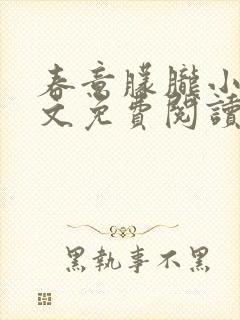 春意朦朧小
文免費閱讀
黑執事不黑